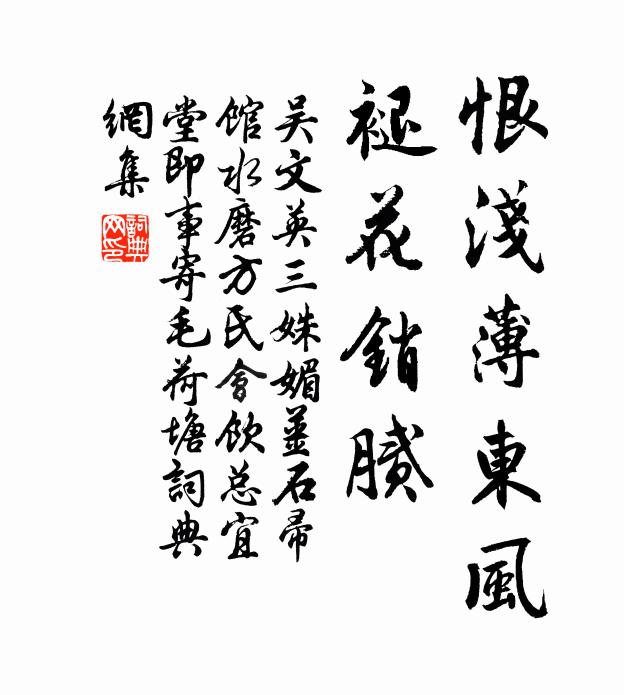 恨淺薄東風
褪花銷膩
吳文英三姝媚薑石帚
館水磨方氏會飲总宜
堂即事寄毛荷塘詞典
網集
詞典
网印